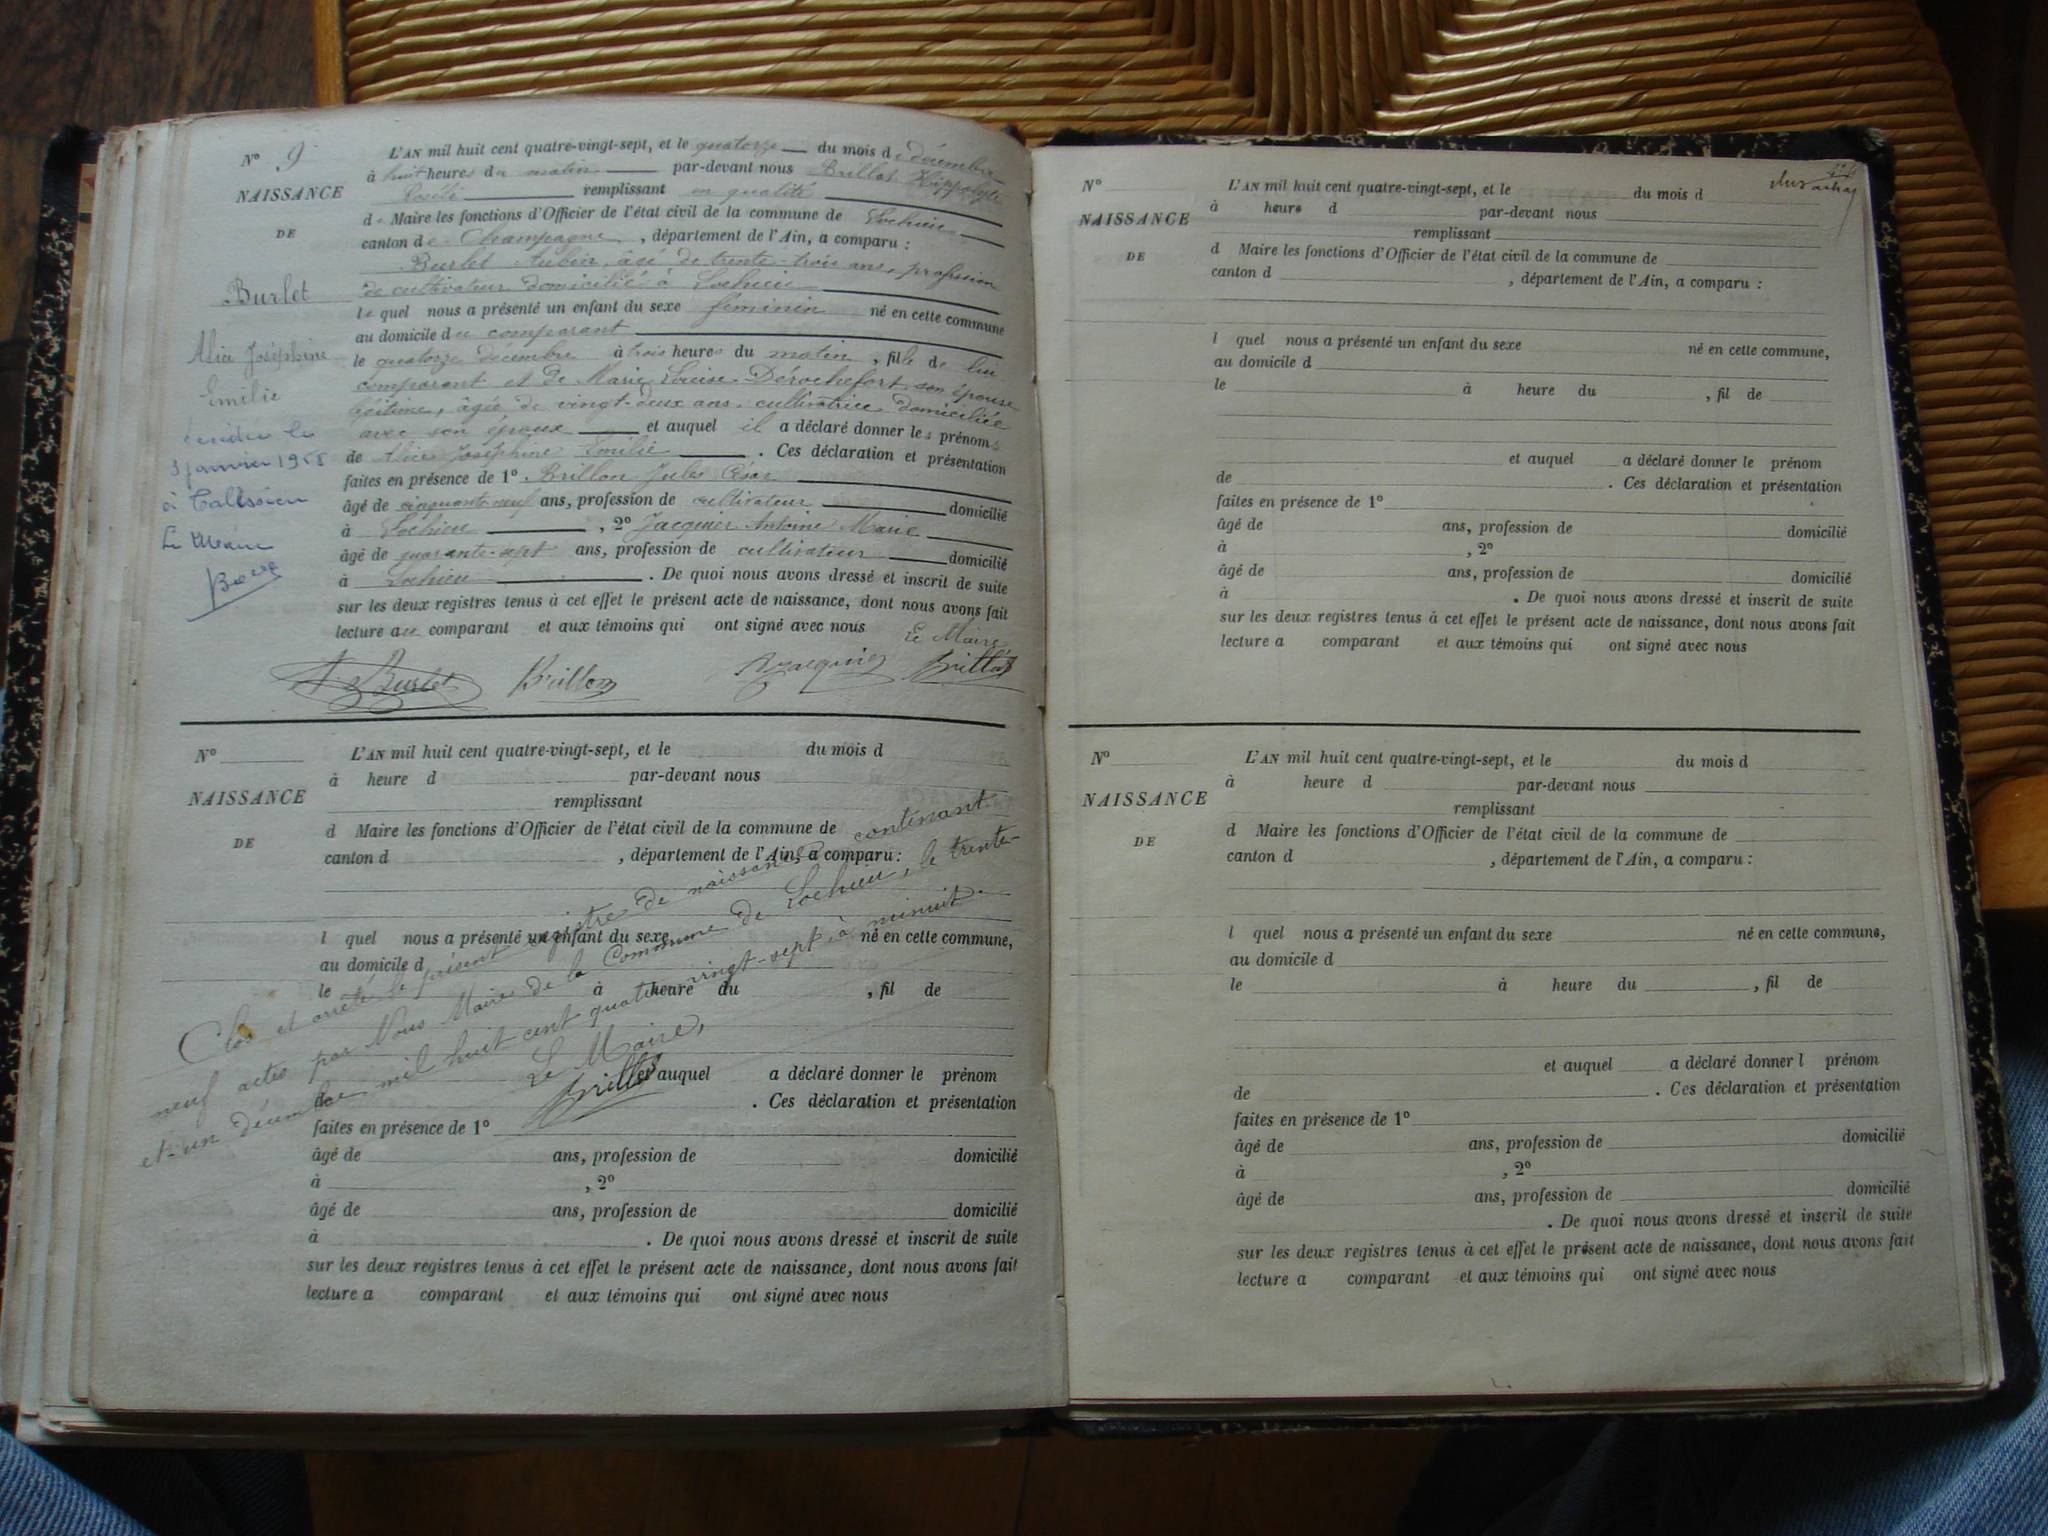 N° 9
NAISSANCE
DE
Burlet
Alice Joséphine
Emilie
décédée le
3 janvier 1958
à Talissieu
Le Maire
L'AN mil huit cent quatre-vingt-sept, et le quatorze du mois de décembre
à huit heures du matin par-devant nous Brillat Hippolyte
remplissant en qualité
de Maire les fonctions d'Officier de l'état civil de la commune de Lochieu
canton de Champagne, département de l'Ain, a comparu :
Burlet Aubin, âgé de trente-trois ans, profession
de cultivateur domicilié à Lochieu
lequel nous a présenté un enfant du sexe féminin né en cette commune
au domicile du comparant
le quatorze décembre à trois heures du matin, fille de lui
comparant et de Marie Louise Dérochefort son épouse
légitime, âgée de vingt-deux ans, cultivatrice domiciliée
avec son époux et auquel il a déclaré donner les prénoms
de Alice Joséphine Emilie. Ces déclaration et présentation
faites en présence de 1° Brillon Jules César
âgé de cinquante neuf ans, profession de cultivateur domicilié
à Lochieu, 2° Jacquier Antoine Marie
âgé de quarante-sept ans, profession de cultivateur domicilié
à Lochieu. De quoi nous avons dressé et inscrit de suite
sur les deux registres tenus à cet effet le présent acte de naissance, dont nous avons fait
lecture au comparant et aux témoins qui ont signé avec nous
Le Maire
A Burlet Brillon Jacquier Brillat
N°
NAISSANCE
DE
L'AN mil huit cent quatre-vingt-sept, et le du mois d
à heure d par-devant nous
remplissant
d Maire les fonctions d'Officier de l'état civil de la commune de
canton d , département de l'Ain, a comparu :
l quel nous a présenté un enfant du sexe né en cette commune,
au domicile d
le à heure du , fil de
et auquel a déclaré donner le prénom
de . Ces déclaration et présentation
faites en présence de 1°
âgé de ans, profession de domicilié
à , 2°
âgé de ans, profession de domicilié
à . De quoi nous avons dressé et inscrit de suite
sur les deux registres tenus à cet effet le présent acte de naissance, dont nous avons fait
lecture a comparant et aux témoins qui ont signé avec nous
Clos et arrêté le présent registre de naissances contenant
neuf actes par Nous Maire de la Commune de Lochieu, le trente-
et-un décembre mil huit cent quatre-vingt-sept, à minuit.
Le Maire,
Brillat
N°
NAISSANCE
DE
L'AN mil huit cent quatre-vingt-sept, et le du mois d
à heure d par-devant nous
remplissant
d Maire les fonctions d'Officier de l'état civil de la commune de
canton d , département de l'Ain, a comparu :
l quel nous a présenté un enfant du sexe né en cette commune,
au domicile d
le à heure du , fil de
et auquel a déclaré donner le prénom
de . Ces déclaration et présentation
faites en présence de 1°
âgé de ans, profession de domicilié
à , 2°
âgé de ans, profession de domicilié
à . De quoi nous avons dressé et inscrit de suite
sur les deux registres tenus à cet effet le présent acte de naissance, dont nous avons fait
lecture a comparant et aux témoins qui ont signé avec nous
N°
NAISSANCE
DE
L'AN mil huit cent quatre-vingt-sept, et le du mois d
à heure d par-devant nous
remplissant
d Maire les fonctions d'Officier de l'état civil de la commune de
canton d , département de l'Ain, a comparu :
l quel nous a présenté un enfant du sexe né en cette commune,
au domicile d
le à heure du , fil de
et auquel a déclaré donner l prénom
de . Ces déclaration et présentation
faites en présence de 1°
âgé de ans, profession de domicilié
à , 2°
âgé de ans, profession de domicilié
. De quoi nous avons dressé et inscrit de suite
sur les deux registres tenus à cet effet le présent acte de naissance, dont nous avons fait
lecture a comparant et aux témoins qui ont signé avec nous